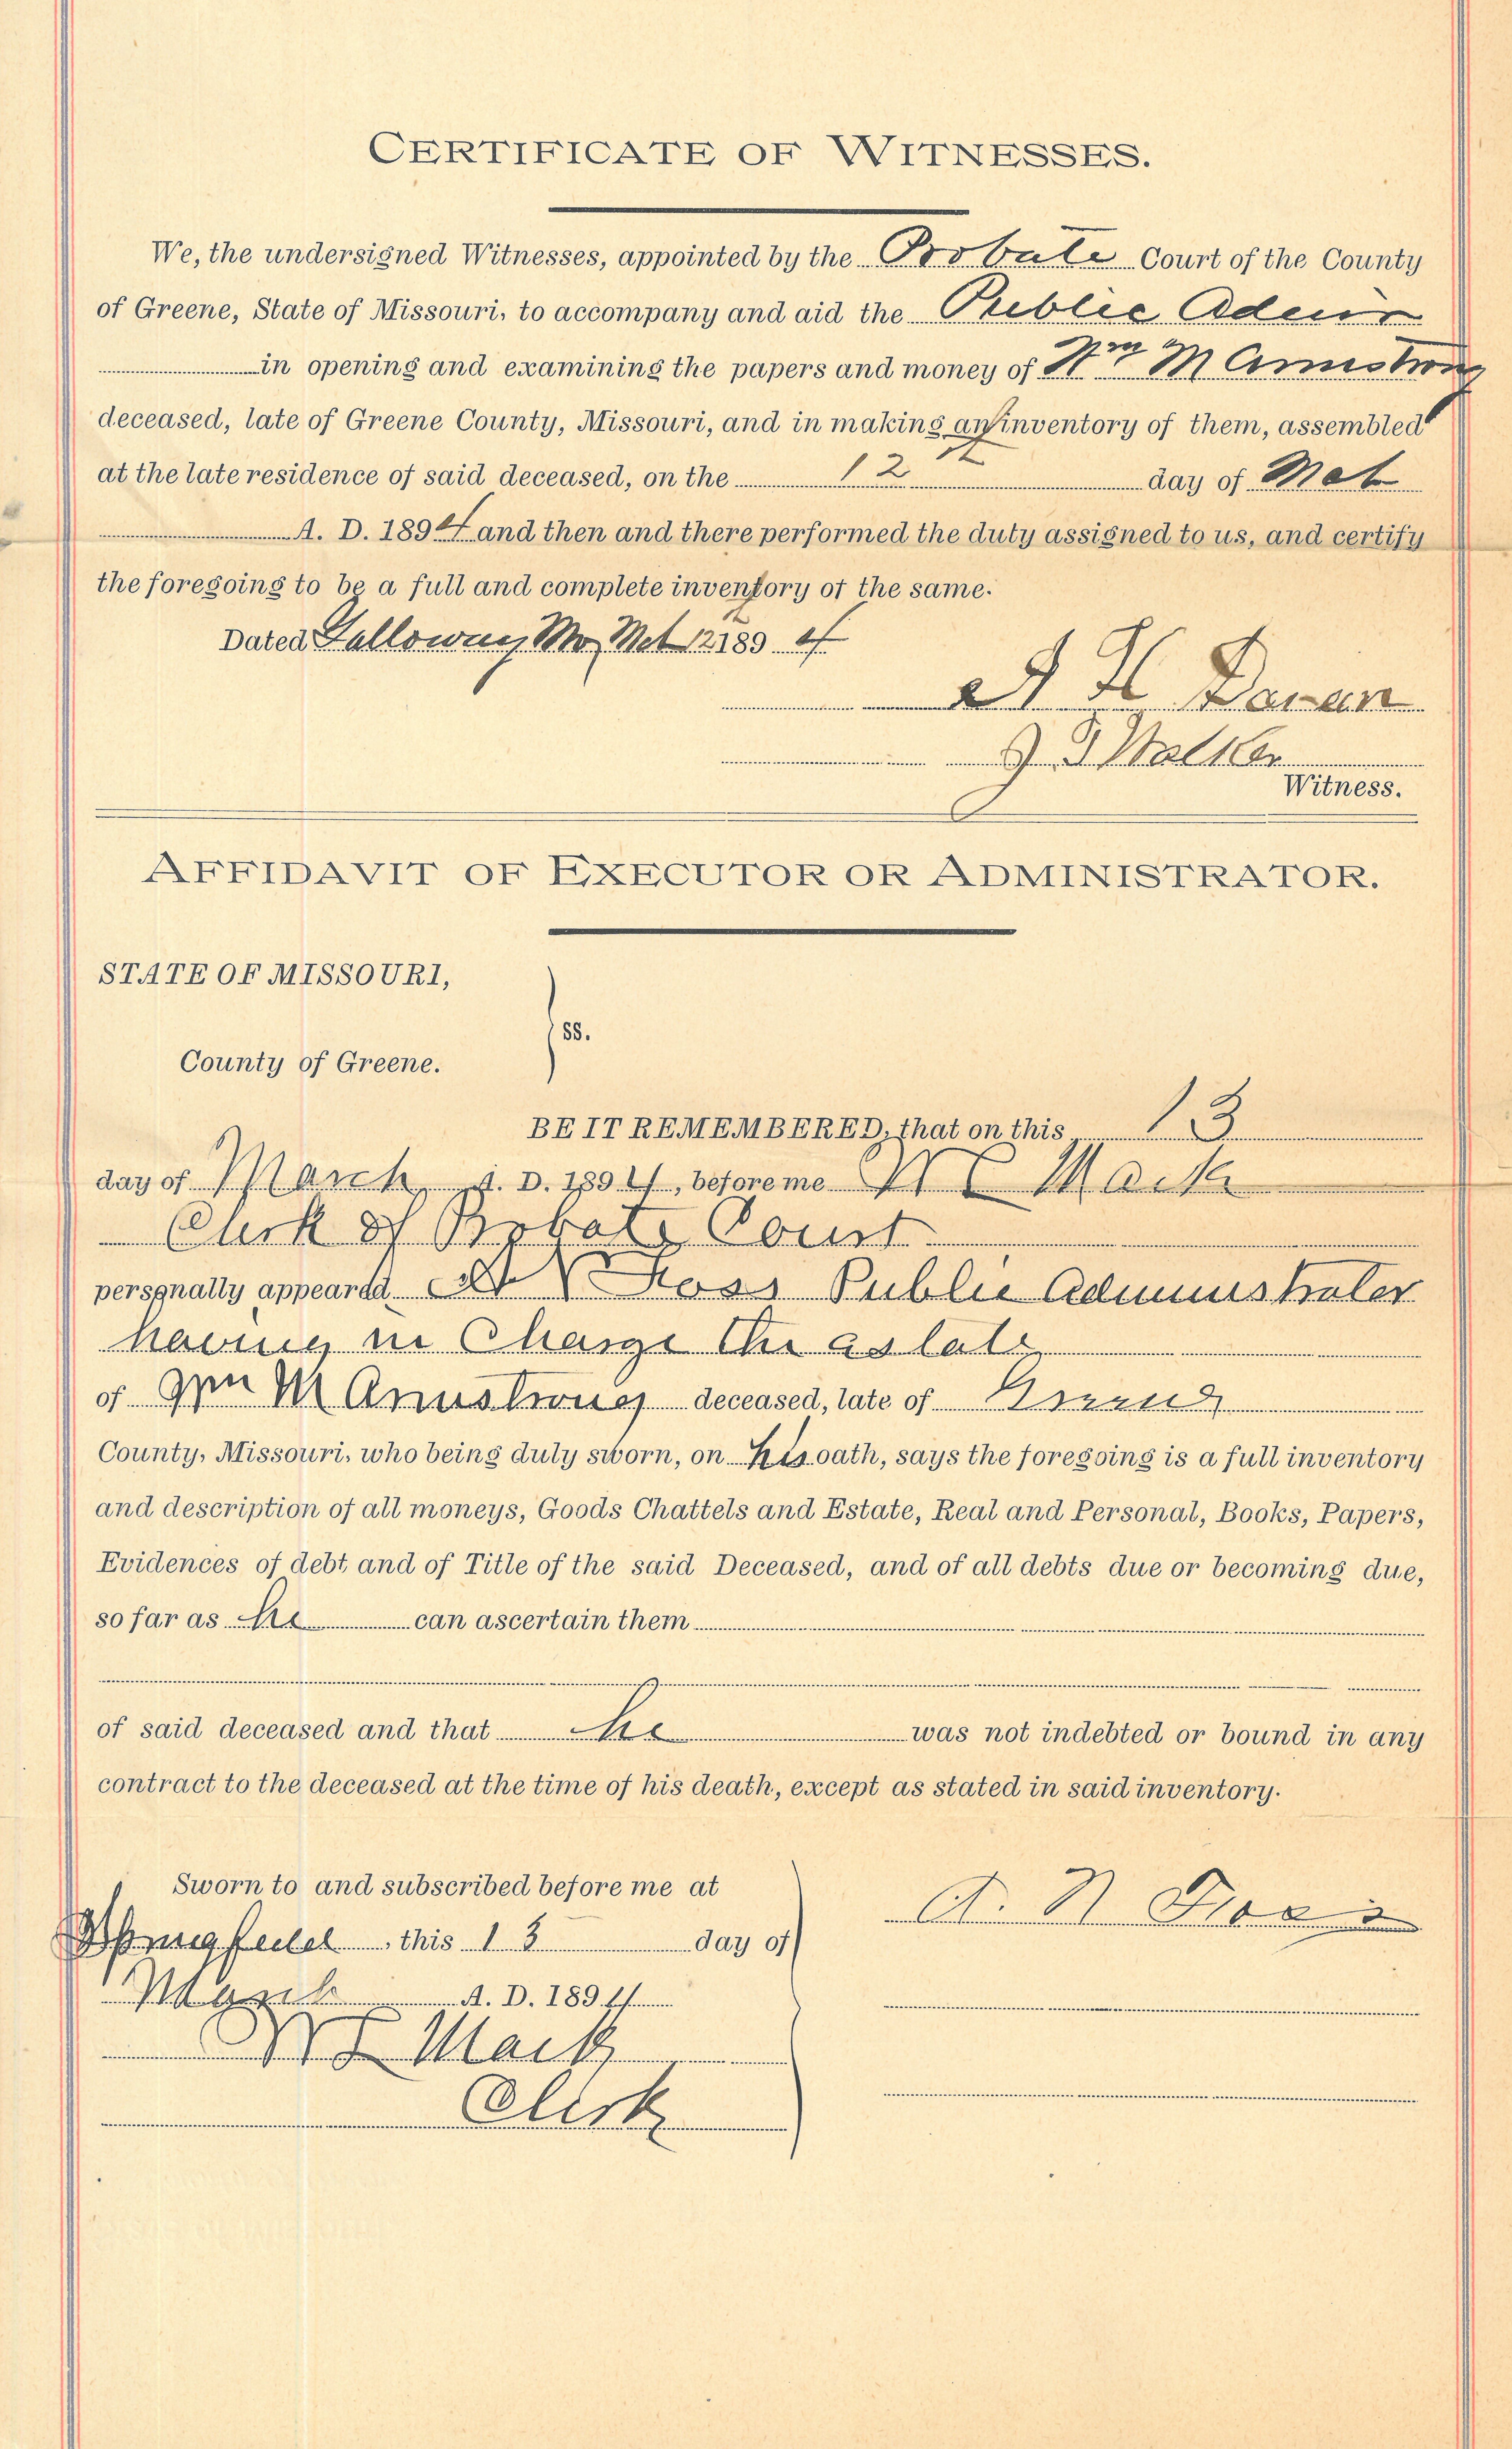 CERTIFICATE OF WITNESSES.
We, the undersigned Witnesses, appointed by the Probate Court of the County
of Greene, State of Missouri, to accompany and aid the Public Admr
in opening and examining the papers and money of Wm M Armstrong
deceased, late of Greene County, Missouri, and in making an inventory of them, assembled
at the late residence of said deceased, on the 12th day of Mch
A. D. 1894 and then and there performed the duty assigned to us, and certify
the foregoing to be a full and complete inventory of the same.
Dated Galloway Mo Mch 12 1894
H
J T Walker
Witness.
AFFIDAVIT OF EXECUTOR OR ADMINISTRATOR.
STATE OF MISSOURI,
ss.
County of Greene.
BE IT REMEMBERED, that on this 13
day of March A. D. 1894, before me Mack
Clerk of Probate Court
personally appeared Public Administrator
having in Charge the estate
of Wm M Armstrong deceased, late of Greene
County, Missouri, who being duly sworn, on his oath, says the foregoing is a full inventory
and description of all moneys, Goods Chattels and Estate, Real and Personal, Books, Papers,
Evidences of debt and of Title of the said Deceased, and of all debts due or becoming due,
so far as he can ascertain them
of said deceased and that he was not indebted or bound in any
contract to the deceased at the time of his death, except as stated in said inventory.
Sworn to and subscribed before me at
Springfield, this 13 day of
March A. D. 1894
Mack
Clerk
A. N.